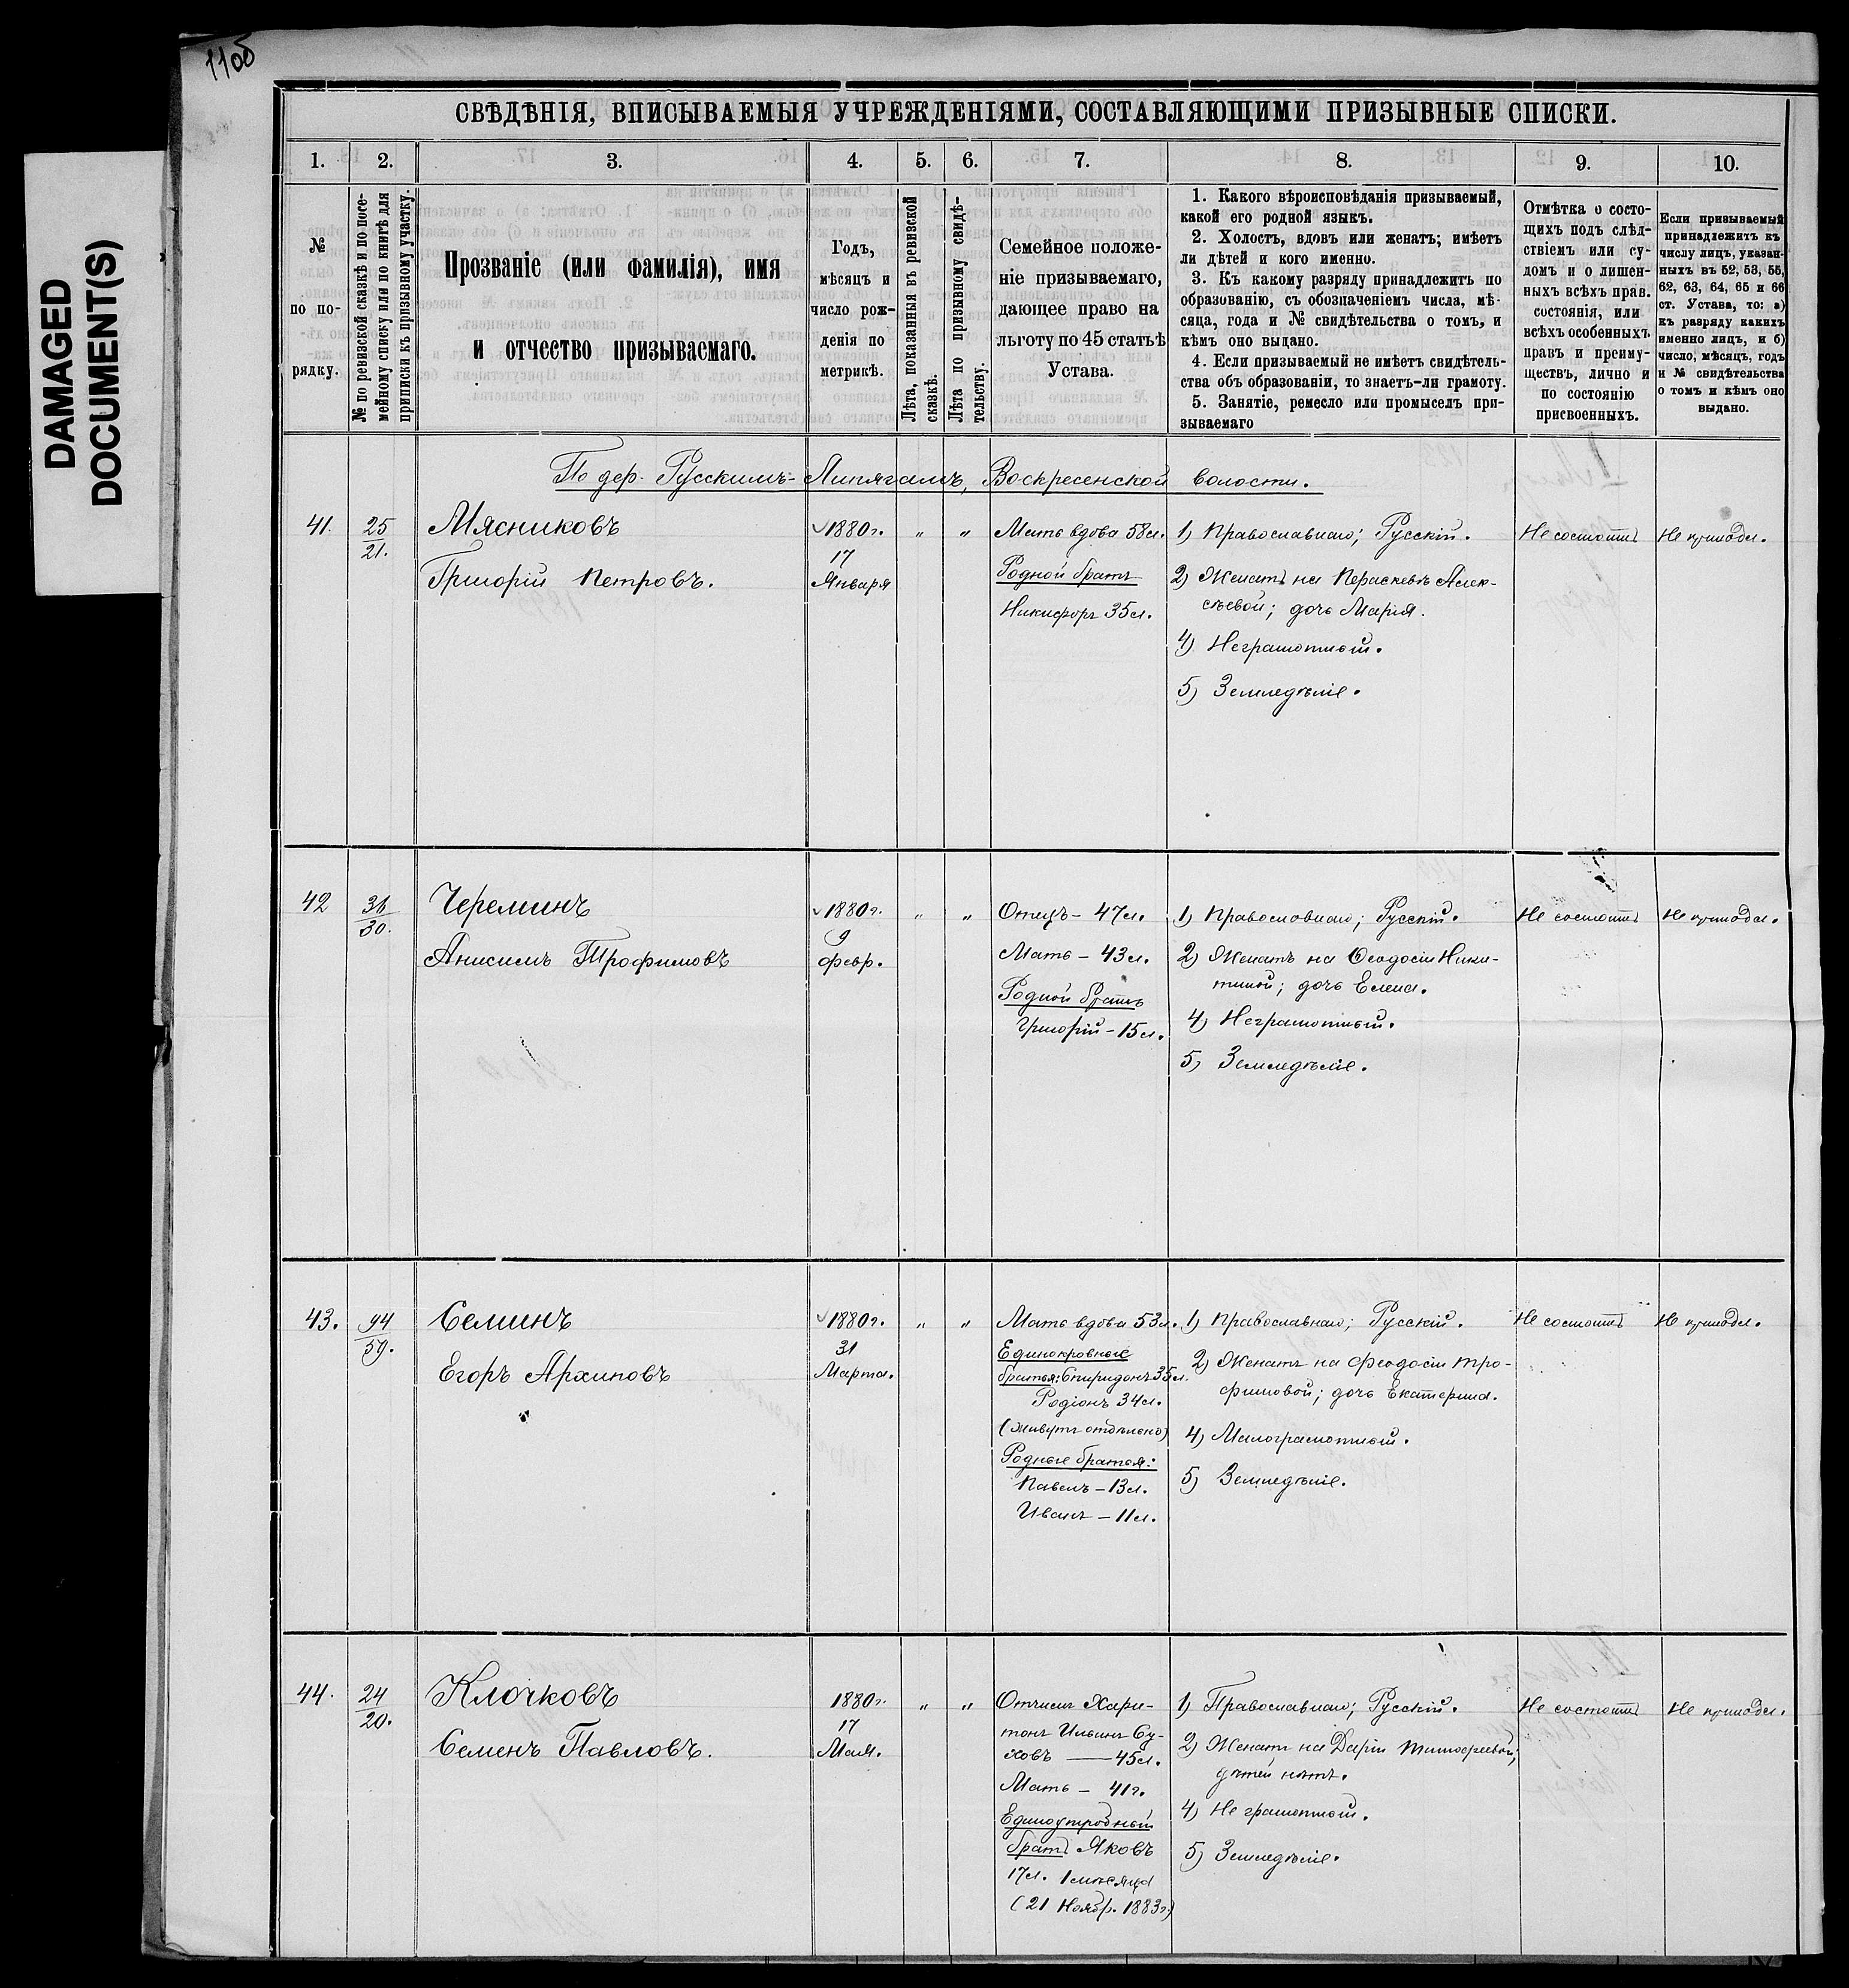 110б
DAMAGED
DOCUMENT(S)
СВѢДѢНІЯ, ВПИСЫВАЕМЫЯ УЧРЕЖДЕНІЯМИ, СОСТАВЛЯЮЩИМИ ПРИЗЫВНЫЕ СПИСКИ.
1. 2. 3. 4. 5. 6. 7. 8. 9. 10.
№
по по-
рядку.
№ по ревизской сказкѣ и по посе-
мейному списку или по книгѣ для
приписки къ призывному участку.
Прозваніе (или фамилія), имя
и отчество призываемаго.
Годъ,
мѣсяцъ и
число рож-
денія по
метрикѣ.
Лѣта, показанныя въ ревизской
сказкѣ.
Лѣта по призывному свидѣ-
тельству.
Семейное положе-
ніе призываемаго,
дающее право на
льготу по 45 статьѣ
Устава.
1. Какого вѣроисповѣданія призываемый,
какой его родной языкъ.
2. Холостъ, вдовъ или женатъ; имѣетъ
ли дѣтей и кого именно.
3. Къ какому разряду принадлежитъ по
образованію, съ обозначеніемъ числа, мѣ-
сяца, года и № свидѣтельства о томъ, и
кѣмъ оно выдано.
4. Если призываемый не имѣетъ свидѣтель-
ства объ образованіи, то знаетъ-ли грамоту.
5. Занятіе, ремесло или промыселъ при-
зываемаго
Отмѣтка о состо-
щихъ подъ слѣд-
ствіемъ или су-
домъ и о лишен-
ныхъ всѣхъ прав.
состоянія, или
всѣхъ особенныхъ
правъ и преиму-
ществъ, лично и
по состоянію
присвоенныхъ.
Если призываемый
принадлежитъ къ
числу лицъ, указан-
ныхъ въ 52, 53, 55,
62, 63, 64, 65 и 66
ст. Устава, то: а)
къ разряду какихъ
именно лицъ, и б)
число, мѣсяцъ, годъ
и № свидѣтельства
о томъ и кѣмъ оно
выдано.
По дер. Русскимъ-Липягамъ, Воскресенской волости.
41.
25
21.
Мясниковъ
Григорій Петровъ.
1880 г.
17
Января
„ „
Мать вдова 58 л.
Родной братъ
Никифоръ 35 л.
1) Православнаго; Русскій.
2) Женатъ на Пераскевѣ Алек-
сѣевой; дочь Марія.
4) Неграмотный.
5) Земледѣліе.
Не состоитъ
Не принадл.
42
36
30.
Череминъ
Анисимъ Трофимовъ
1880 г.
9
февр.
„ „
Отецъ – 47 л.
Мать – 43 л.
Родной братъ
Григорій – 15 л.
1) Православнаго; Русскій.
2) Женатъ на Ѳеодосіи Ники-
тиной; дочь Елена.
4) Неграмотный.
5) Земледѣліе.
Не состоитъ
Не принадл.
43.
94
59.
Семинъ
Егоръ Архиповъ
1880 г.
31
Марта.
„ „
Мать вдова 53 л.
Единокровные
братья: Спиридонъ 35 л.
Родіонъ 34 л.
(живутъ отдѣльно)
Родные братья:
Павелъ – 13 л.
Иванъ – 11 л.
1) Православнаго; Русскій.
2) Женатъ на Феодосіи Тро-
фимовой; дочь Екатерина.
4) Малограмотный.
5) Земледѣліе.
Не состоитъ
Не принадл.
44.
24
20.
Клочковъ
Семенъ Павловъ.
1880 г.
17
Мая.
„ „
Отчимъ Хари-
тонъ Ильинъ Су-
ховъ — 45 л.
Мать – 41 г.
Единоутробный
братъ Яковъ
17 л. 1 мѣсяца
(21 Ноябр. 1883 г.)
1) Православнаго; Русскій.
2) Женатъ на Даріи Тимофеевой;
дѣтей нѣтъ.
4) Не грамотный.
5) Земледѣліе.
Не состоитъ
Не принадл.